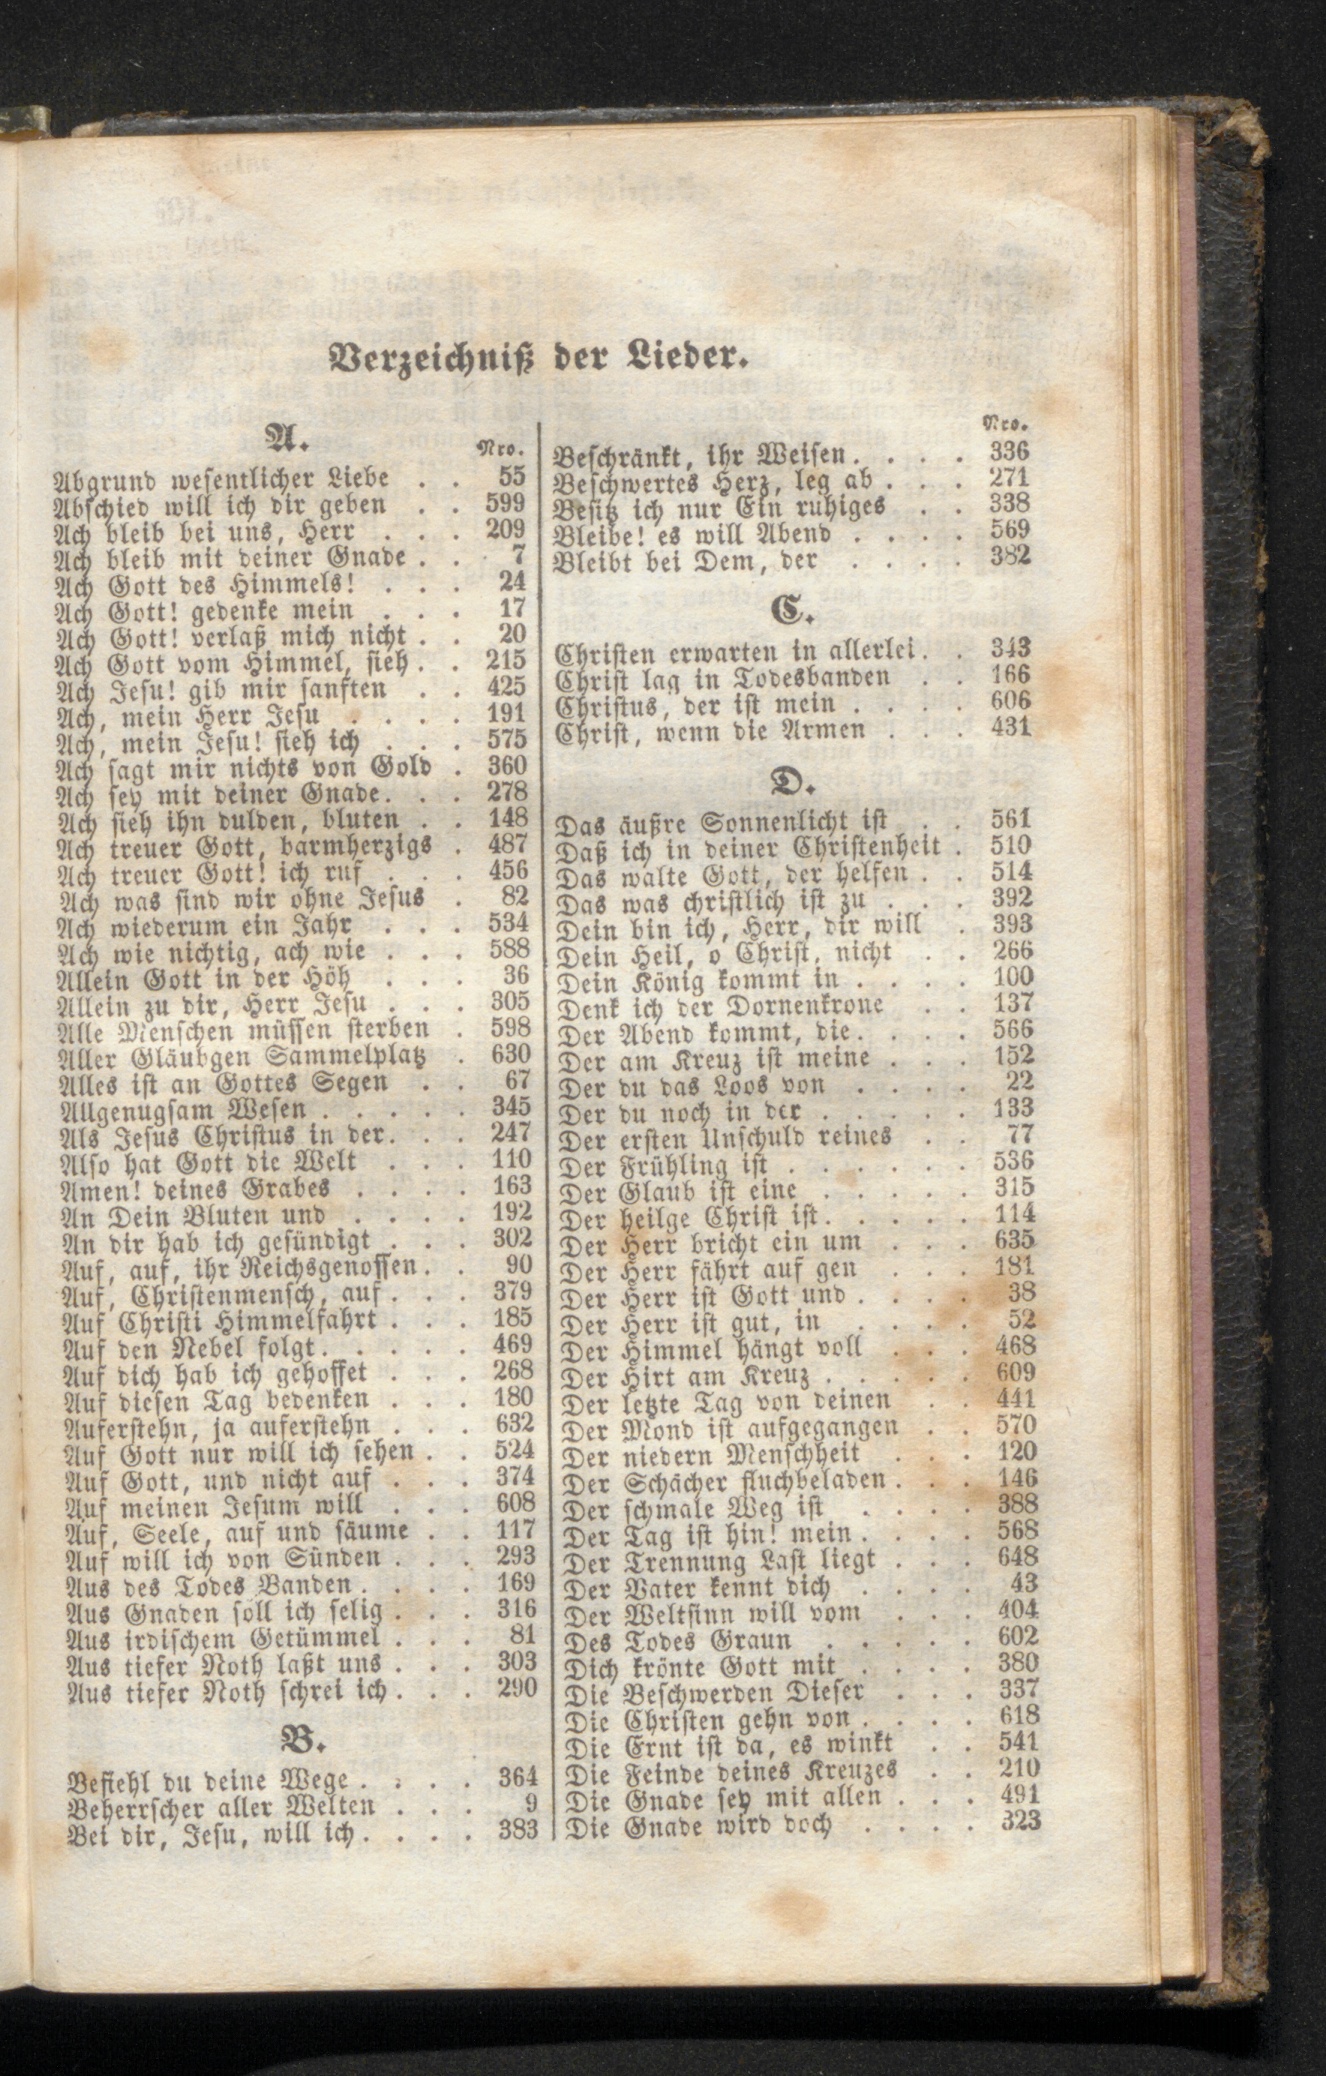 Verzeichniß der Lieder.
A.
Nro.
Abgrund wesentlicher Liebe . . 55
Abschied will ich dir geben . . 599
Ach bleib bei uns, Herr . . . 209
Ach bleib mit deiner Gnade . . 7
Ach Gott des Himmels! . . . 24
Ach Gott! gedenke mein . . . 17
Ach Gott! verlaß mich nicht . . 20
Ach Gott vom Himmel, sieh . . 215
Ach Jesu! gib mir sanften . . 425
Ach, mein Herr Jesu . . . . 191
Ach, mein Jesu! sieh ich . . . 575
Ach sagt mir nichts von Gold . 360
Ach sey mit deiner Gnade. . . 278
Ach sieh ihn dulden, bluten . . 148
Ach treuer Gott, barmherzigs . 487
Ach treuer Gott! ich ruf . . . 456
Ach was sind wir ohne Jesus . 82
Ach wiederum ein Jahr . . . 534
Ach wie nichtig, ach wie . . . 588
Allein Gott in der Höh . . . 36
Allein zu dir, Herr Jesu . . . 305
Alle Menschen müssen sterben . 598
Aller Gläubgen Sammelplatz . 630
Alles ist an Gottes Segen . . 67
Allgenugsam Wesen . . . . . 345
Als Jesus Christus in der. . . 247
Also hat Gott die Welt . . . 110
Amen! deines Grabes . . . . 163
An Dein Bluten und . . . . 192
An dir hab ich gesündigt . . . 302
Auf, auf, ihr Reichsgenossen. . 90
Auf, Christenmensch, auf . . . 379
Auf Christi Himmelfahrt . . . 185
Auf den Nebel folgt. . . . . 469
Auf dich hab ich gehoffet . . . 268
Auf diesen Tag bedenken . . . 180
Auferstehn, ja auferstehn . . . 632
Auf Gott nur will ich sehen . . 524
Auf Gott, und nicht auf . . . 374
Auf meinen Jesum will . . . 608
Auf, Seele, auf und säume . . 117
Auf will ich von Sünden . . . 293
Aus des Todes Banden . . . . 169
Aus Gnaden soll ich selig . . . 316
Aus irdischem Getümmel . . . 81
Aus tiefer Noth laßt uns . . . 303
Aus tiefer Noth schrei ich . . . 290
B.
Befiehl du deine Wege . . . . 364
Beherrscher aller Welten . . . 9
Bei dir, Jesu, will ich . . . . 383
Nro.
Beschränkt, ihr Weisen. . . . 336
Beschwertes Herz, leg ab . . . 271
Besitz ich nur Ein ruhiges . . 338
Bleibe! es will Abend . . . . 569
Bleibt bei Dem, der . . . . 382
C.
Christen erwarten in allerlei. . 343
Christ lag in Todesbanden . . 166
Christus, der ist mein . . . . 606
Christ, wenn die Armen . . . 431
D.
Das äußre Sonnenlicht ist . . 561
Daß ich in deiner Christenheit . 510
Das walte Gott, der helfen . . 514
Das was christlich ist zu . . . 392
Dein bin ich, Herr, dir will . 393
Dein Heil, o Christ, nicht . . 266
Dein König kommt in . . . . 100
Denk ich der Dornenkrone . . 137
Der Abend kommt, die. . . . 566
Der am Kreuz ist meine . . . 152
Der du das Loos von . . . . 22
Der du noch in der . . . . . 133
Der ersten Unschuld reines . . 77
Der Frühling ist . . . . . . 536
Der Glaub ist eine . . . . . 315
Der heilge Christ ist. . . . . 114
Der Herr bricht ein um . . . 635
Der Herr fährt auf gen . . . 181
Der Herr ist Gott und . . . . 38
Der Herr ist gut, in . . . . 52
Der Himmel hängt voll . . . 468
Der Hirt am Kreuz . . . . . 609
Der letzte Tag von deinen . . 441
Der Mond ist aufgegangen . . 570
Der niedern Menschheit . . . 120
Der Schächer fluchbeladen . . . 146
Der schmale Weg ist . . . . 388
Der Tag ist hin! mein . . . . 568
Der Trennung Last liegt . . . 648
Der Vater kennt dich . . . . 43
Der Weltsinn will vom . . . 404
Des Todes Graun . . . . . 602
Dich krönte Gott mit . . . . 380
Die Beschwerden Dieser . . . 337
Die Christen gehn von . . . . 618
Die Ernt ist da, es winkt . . 541
Die Feinde deines Kreuzes . . 210
Die Gnade sey mit allen . . . 491
Die Gnade wird doch . . . . 323